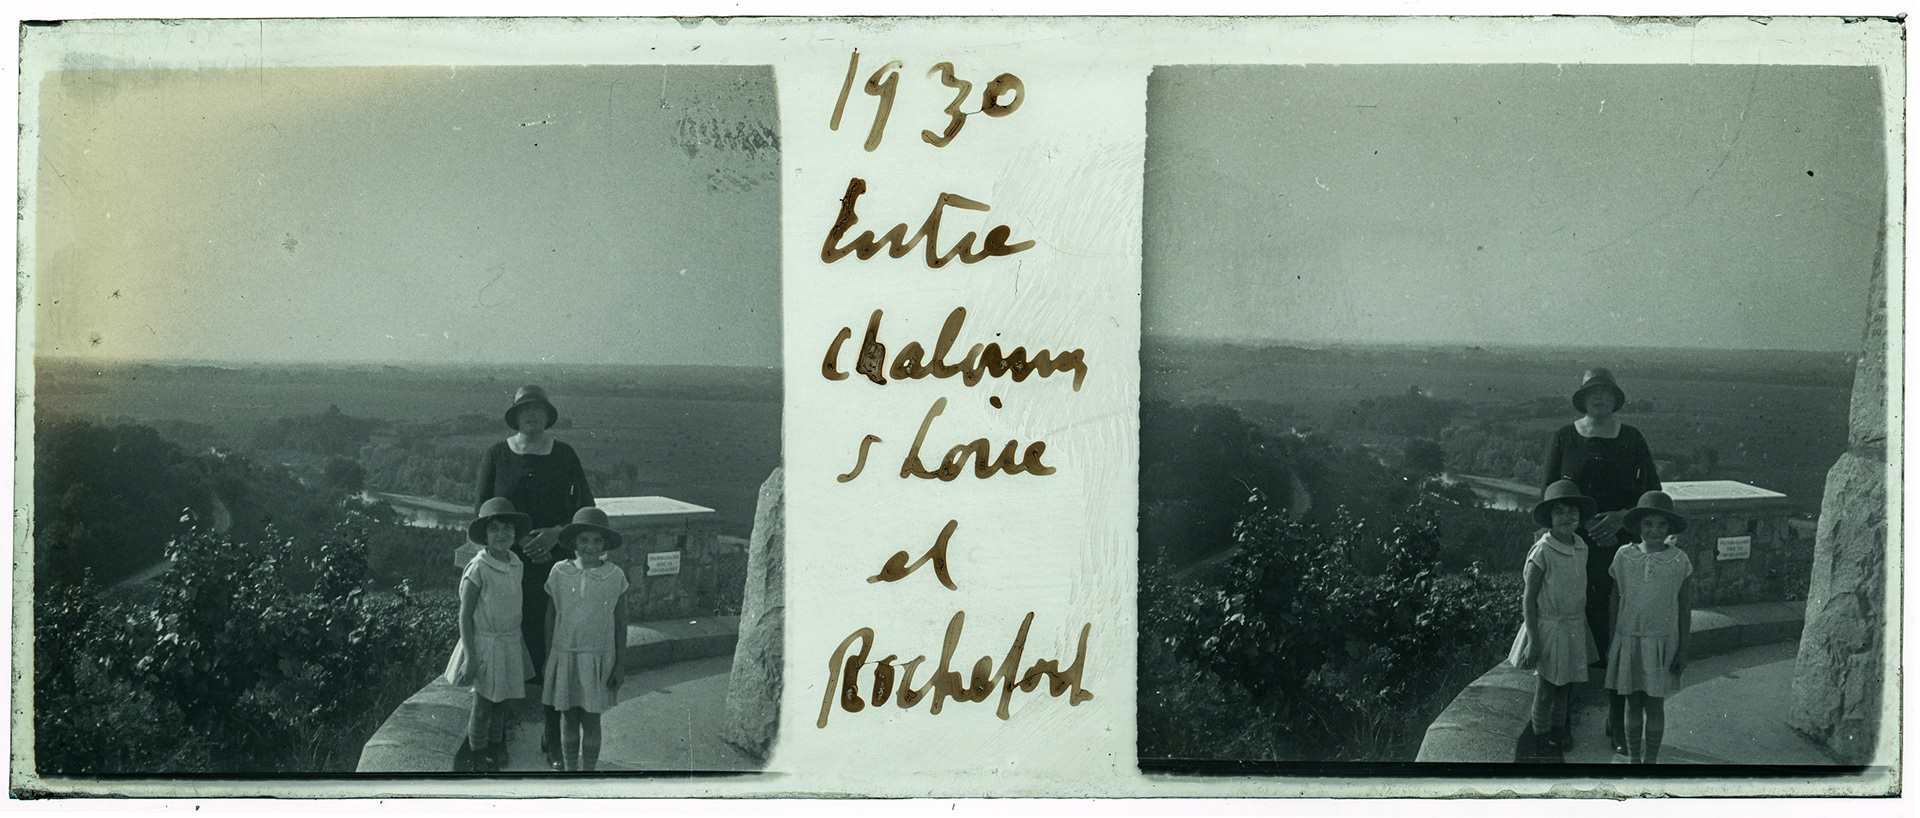 1930
Entre
Chalonnes
s Loire
et
Rochefort